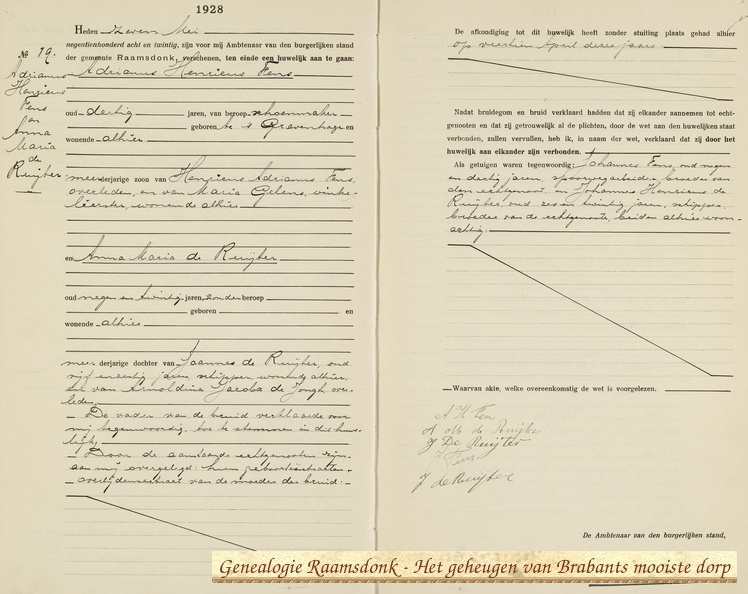 1928
№ 19.
Adrianus
Henricus
Fens
en
Anna
Maria
de
Ruijter.
Heden zeven Mei
negentienhonderd acht en twintig, zijn voor mij Ambtenaar van den burgerlijken stand
der gemeente Raamsdonk, verschenen, ten einde een huwelijk aan te gaan:
Adrianus Henricus Fens
oud dertig jaren, van beroep schoenmaker
geboren te 's Gravenhage en
wonende alhier
meerderjarige zoon van Henricus Adrianus Fens,
overleden, en van Maria Gelens, winke-
lierster, wonende alhier
en Anna Maria de Ruijter
oud negen en twintig jaren, zonder beroep
geboren en
wonende alhier
meerderjarige dochter van Joannes de Ruijter, oud
vijf en zestig jaren, schipper, wonende alhier,
en van Arnoldina Jacoba de Jongh, over-
leden.
De vader van de bruid verklaarde voor
mij tegenwoordig, toe te stemmen in dit huwe-
lijk.
Door de aanstaande echtgenooten zijn
aan mij overgelegd: hun geboorteextracten
overlijdensextract van de moeder der bruid.
De afkondiging tot dit huwelijk heeft zonder stuiting plaats gehad alhier
op veertien April dezes jaars.
Nadat bruidegom en bruid verklaard hadden dat zij elkander aannemen tot echt-
genooten en dat zij getrouwelijk al de plichten, door de wet aan den huwelijken staat
verbonden, zullen vervullen, heb ik, in naam der wet, verklaard dat zij door het
huwelijk aan elkander zijn verbonden.
Als getuigen waren tegenwoordig: Johannes Fens, oud negen
en dertig jaren, spoorwegarbeider, broeder van
den echtgenoot, en Johannes Henricus de
Ruijter, oud zes en twintig jaren, schipper,
broeder van de echtgenoote, beiden alhier woon-
achtig.
Waarvan akte, welke overeenkomstig de wet is voorgelezen.
A H Fens
A M de Ruijter
J De Ruijter
J Fens
J de Ruijter
De Ambtenaar van den burgerlijken stand,
Genealogie Raamsdonk - Het geheugen van Brabants mooiste dorp